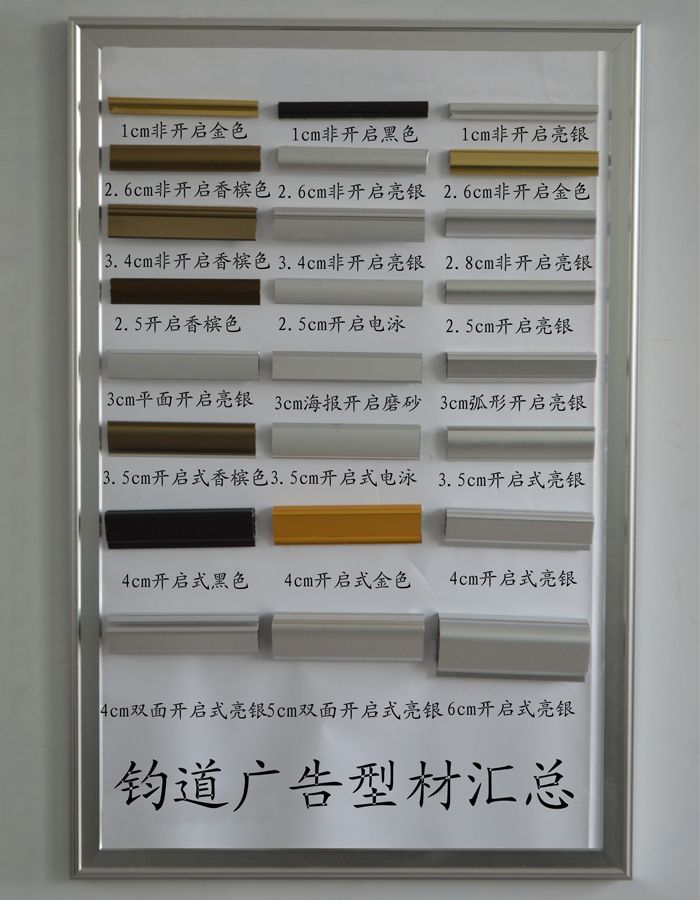 1cm非开启金色 1cm非开启黑色 1cm非开启亮银
2.6cm非开启香槟色 2.6cm非开启亮银 2.6cm非开启金色
3.4cm非开启香槟色 3.4cm非开启亮银 2.8cm非开启亮银
2.5开启香槟色 2.5cm开启电泳 2.5cm开启亮银
3cm平面开启亮银 3cm海报开启磨砂 3cm弧形开启亮银
3.5cm开启式香槟色 3.5cm开启式电泳 3.5cm开启式亮银
4cm开启式黑色 4cm开启式金色 4cm开启式亮银
4cm双面开启式亮银 5cm双面开启式亮银 6cm开启式亮银
钧道广告型材汇总